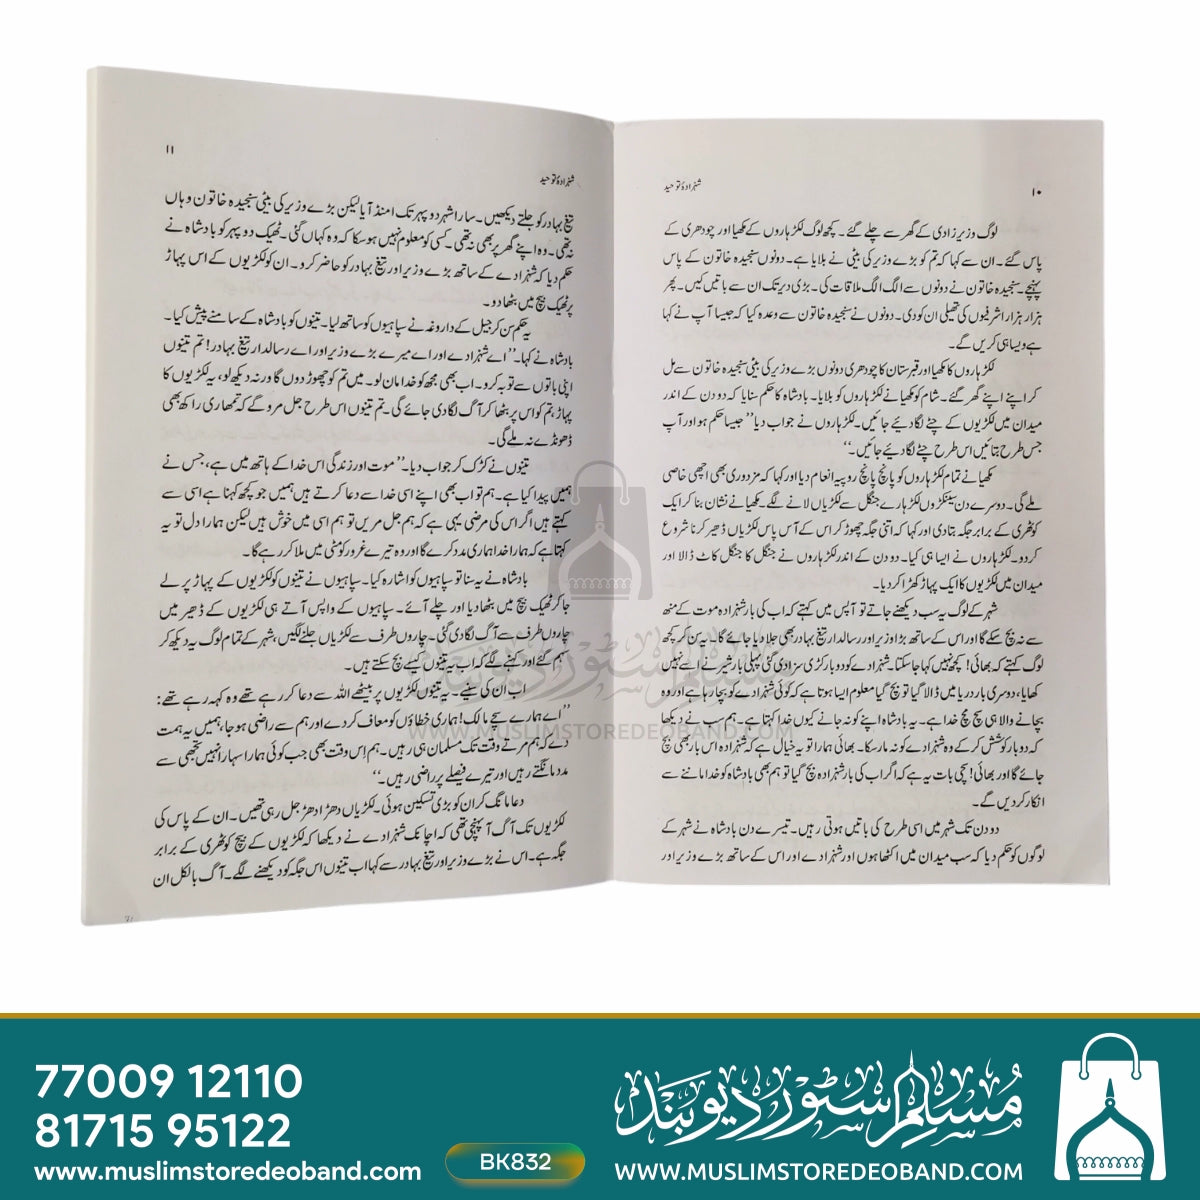 ۱۰
شہزادۂ توحید
لوگ وزیر زادی کے گھر سے چلے گئے۔ کچھ لوگ لکڑہاروں کے مکھیا اور چودھری کے
پاس گئے۔ ان سے کہا کہ تم کو بڑے وزیر کی بیٹی نے بلایا ہے۔ دونوں سنجیدہ خاتون کے پاس
پہنچے۔ سنجیدہ خاتون نے دونوں سے الگ الگ ملاقات کی۔ بڑی دیر تک ان سے باتیں کیں۔ پھر
ہزار ہزار اشرفیوں کی تھیلی ان کو دی۔ دونوں نے سنجیدہ خاتون سے وعدہ کیا کہ جیسا آپ نے کہا
ہے ویسا ہی کریں گے۔
لکڑہاروں کا مکھیا اور قبرستان کا چودھری دونوں بڑے وزیر کی بیٹی سنجیدہ خاتون سے مل
کر اپنے اپنے گھر گئے۔ شام کو مکھیا نے لکڑہاروں کو بلایا۔ بادشاہ کا حکم سنایا کہ دو دن کے اندر
میدان میں لکڑیوں کے چٹے لگا دیئے جائیں۔ لکڑہاروں نے جواب دیا ”جیسا حکم ہو اور آپ
جس طرح بتائیں اس طرح چٹے لگا دیئے جائیں۔“
مکھیا نے تمام لکڑہاروں کو پانچ پانچ روپیہ انعام دیا اور کہا کہ مزدوری بھی اچھی خاصی
ملے گی۔ دوسرے دن سینکڑوں لکڑہارے جنگل سے لکڑیاں لانے لگے۔ مکھیا نے نشان بنا کر ایک
کوٹھری کے برابر جگہ بتا دی اور کہا کہ اتنی جگہ چھوڑ کر اس کے آس پاس لکڑیاں ڈھیر کرنا شروع
کردو۔ لکڑہاروں نے ایسا ہی کیا۔ دو دن کے اندر لکڑہاروں نے جنگل کا جنگل کاٹ ڈالا اور
میدان میں لکڑیوں کا ایک پہاڑ کھڑا کر دیا۔
شہر کے لوگ یہ سب دیکھنے جاتے تو آپس میں کہتے کہ اب کی بار شہزادہ موت کے منھ
سے نہ بچ سکے گا اور اس کے ساتھ بڑا وزیر اور رسالدار تیغ بہادر بھی جلا دیا جائے گا۔ یہ سن کر کچھ
لوگ کہتے کہ بھائی! کچھ نہیں کہا جا سکتا۔ شہزادے کو دو بار کڑی سزا دی گئی پہلی بار شیر نے اسے نہیں
کھایا، دوسری بار دریا میں ڈالا گیا تو بچ گیا معلوم ایسا ہوتا ہے کہ کوئی شہزادے کو بچا رہا ہے اور وہ
بچانے والا ہی سچ مچ خدا ہے۔ یہ بادشاہ اپنے کو نہ جانے کیوں خدا کہتا ہے۔ ہم سب نے دیکھا
کہ دو بار کوشش کر کے وہ شہزادے کو نہ مار سکا۔ بھائی ہمارا تو یہ خیال ہے کہ شہزادہ اس بار بھی بچ
جائے گا اور بھائی! سچی بات یہ ہے کہ اگر اب کی بار شہزادہ بچ گیا تو ہم بھی بادشاہ کو خدا ماننے سے
انکار کر دیں گے۔
دو دن تک شہر میں اسی طرح کی باتیں ہوتی رہیں۔ تیسرے دن بادشاہ نے شہر کے
لوگوں کو حکم دیا کہ سب میدان میں اکٹھا ہوں اور شہزادے اور اس کے ساتھ بڑے وزیر اور
۱۱
شہزادۂ توحید
تیغ بہادر کو جلتے دیکھیں۔ سارا شہر دوپہر تک امنڈ آیا لیکن بڑے وزیر کی بیٹی سنجیدہ خاتون وہاں
نہ تھی۔ وہ اپنے گھر پر بھی نہ تھی۔ کسی کو معلوم نہیں ہو سکا کہ وہ کہاں گئی۔ ٹھیک دوپہر کو بادشاہ نے
حکم دیا کہ شہزادے کے ساتھ بڑے وزیر اور تیغ بہادر کو حاضر کرو۔ ان کو لکڑیوں کے اس پہاڑ
پر ٹھیک بیچ میں بٹھا دو۔
یہ حکم سن کر جیل کے داروغہ نے سپاہیوں کو ساتھ لیا۔ تینوں کو بادشاہ کے سامنے پیش کیا۔
بادشاہ نے کہا۔ ”اے شہزادے اور اے میرے بڑے وزیر اور اے رسالدار تیغ بہادر! تم تینوں
اپنی باتوں سے توبہ کرو۔ اب بھی مجھ کو خدا مان لو۔ میں تم کو چھوڑ دوں گا ورنہ دیکھ لو، یہ لکڑیوں کا
پہاڑ، تم کو اس پر بٹھا کر آگ لگا دی جائے گی۔ تم تینوں اس طرح جل مرو گے کہ تمھاری راکھ بھی
ڈھونڈے نہ ملے گی۔
تینوں نے کڑک کر جواب دیا۔ ”موت اور زندگی اس خدا کے ہاتھ میں ہے، جس نے
ہمیں پیدا کیا ہے۔ ہم تو اب بھی اپنے اسی خدا سے دعا کرتے ہیں ہمیں جو کچھ کہنا ہے اسی سے
کہتے ہیں اگر اس کی مرضی یہی ہے کہ ہم جل مریں تو ہم اسی میں خوش ہیں لیکن ہمارا دل تو یہ
کہتا ہے کہ ہمارا خدا ہماری مدد کرے گا اور وہ تیرے غرور کو مٹی میں ملا کر رہے گا۔
بادشاہ نے یہ سنا تو سپاہیوں کو اشارہ کیا۔ سپاہیوں نے تینوں کو لکڑیوں کے پہاڑ پر لے
جا کر ٹھیک بیچ میں بٹھا دیا اور چلے آئے۔ سپاہیوں کے واپس آتے ہی لکڑیوں کے ڈھیر میں
چاروں طرف سے آگ لگا دی گئی۔ چاروں طرف سے لکڑیاں جلنے لگیں، شہر کے تمام لوگ یہ دیکھ کر
سہم گئے اور کہنے لگے کہ اب یہ تینوں کیسے بچ سکتے ہیں۔
اب ان کی سنیے۔ یہ تینوں لکڑیوں پر بیٹھے اللہ سے دعا کر رہے تھے وہ کہہ رہے تھے:
”اے ہمارے سچے مالک! ہماری خطاؤں کو معاف کر دے اور ہم سے راضی ہو جا، ہمیں یہ ہمت
دے کہ ہم مرتے وقت تک مسلمان ہی رہیں۔ ہم اِس وقت بھی جب کوئی ہمارا سہارا نہیں تجھی سے
مدد مانگتے رہیں اور تیرے فیصلے پر راضی رہیں۔“
دعا مانگ کر ان کو بڑی تسکین ہوئی۔ لکڑیاں دھڑا دھڑ جل رہی تھیں۔ ان کے پاس کی
لکڑیوں تک آگ آ پہنچی تھی کہ اچانک شہزادے نے دیکھا کہ لکڑیوں کے بیچ کوٹھری کے برابر
جگہ ہے۔ اس نے بڑے وزیر اور تیغ بہادر سے کہا اب تینوں اس جگہ کو دیکھنے لگے۔ آگ بالکل ان
مسلم سٹور دیوبند
WWW.MUSLIMSTOREDEOBAND.COM
77009 12110
81715 95122
www.muslimstoredeoband.com
BK832
مسلم سٹور دیوبند
WWW.MUSLIMSTOREDEOBAND.COM